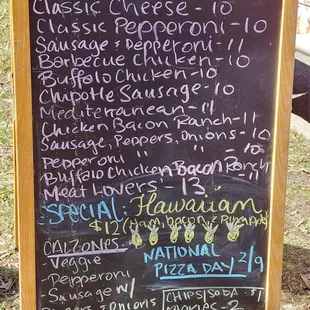 Classic Cheese - 10
Classic Pepperoni - 10
Sausage & Pepperoni - 11
Borbecue Chicken - 10
Buffalo Chicken - 10
Chipotle Sausage - 10
Mediterranean - 11
Chicken Bacon Ranch - 11
Sausage, Peppers, Onions - 10
Pepperoni " " - 10
Buffalo Chicken Bacon Ranch
Meat Lovers - 13
SPECIAL: Hawaiian
$12 (Ham, bacon, & Pineapple)
CALZONES
- Veggie
- Pepperoni
- Sausage w/
Peppers & Onions
NATIONAL
PIZZA DAY 2/9
CHIPS/SODA - $1
- 2